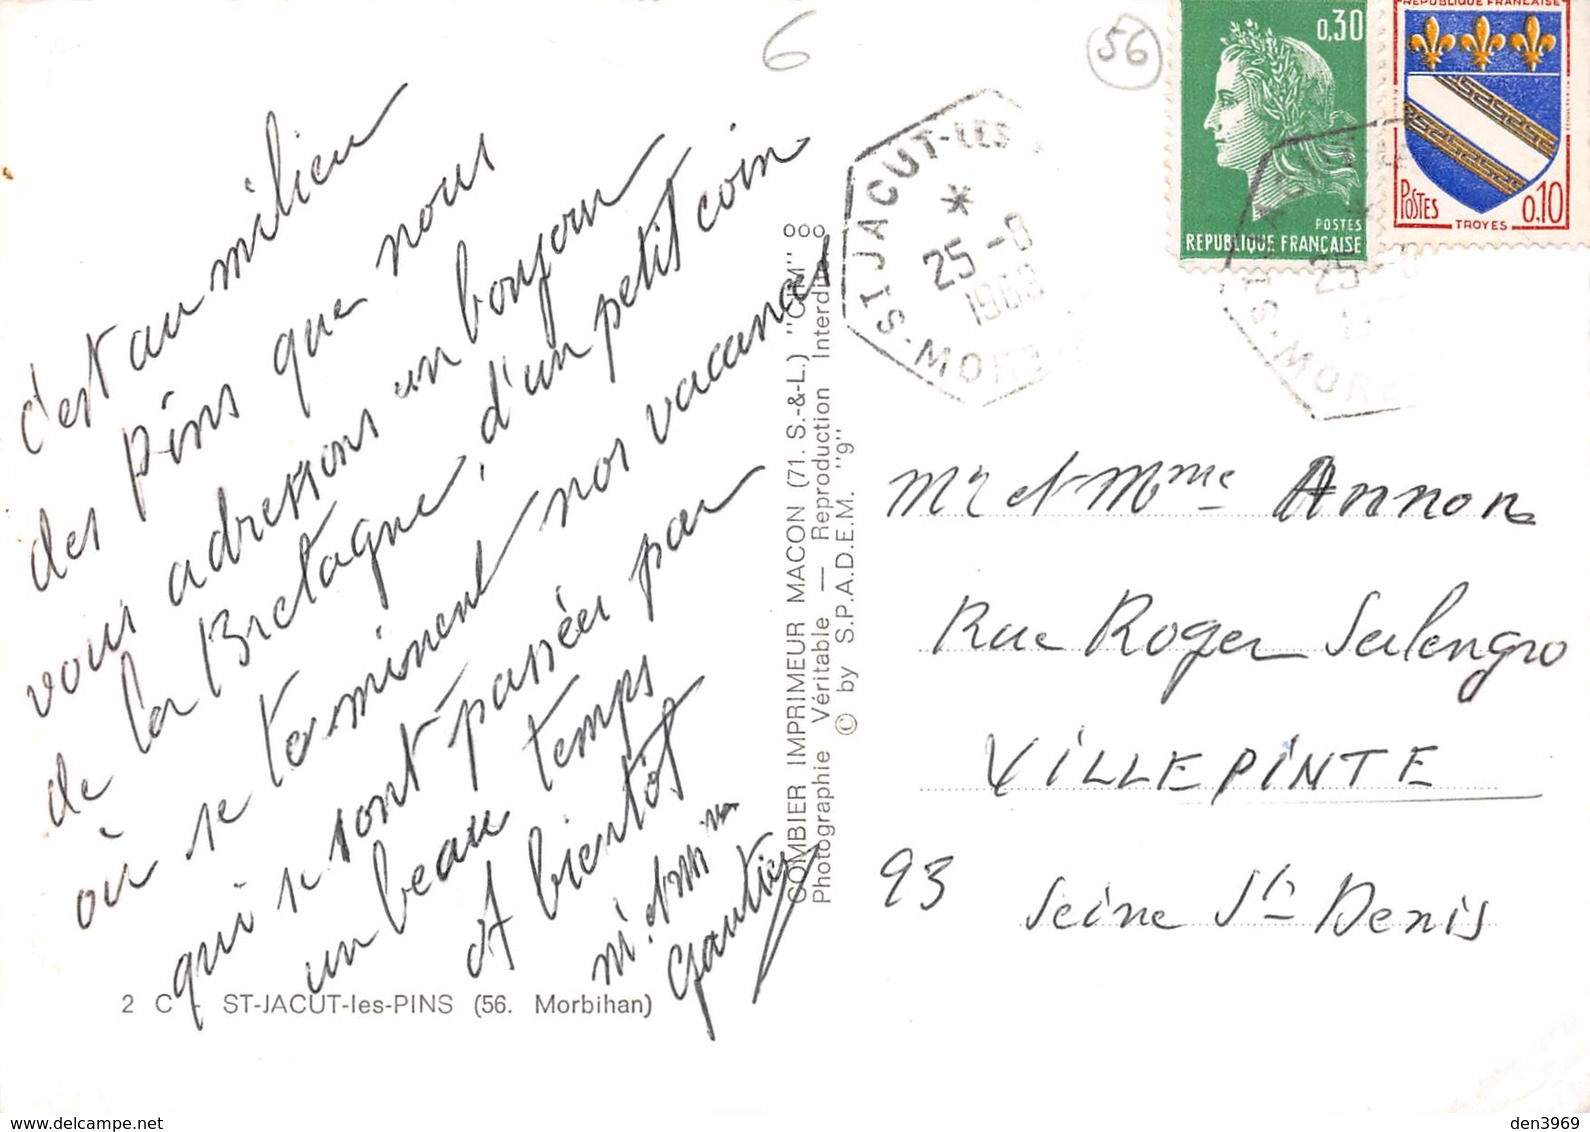 6
56
c'est au milieu
des pins que nous
vous adressons un bonjour
de la Bretagne, d'un petit coin
où se terminent nos vacances
qui se sont passées par
un beau temps
A bientôt
Gautier
2 C - ST-JACUT-les-PINS (56. Morbihan)
COMBIER IMPRIMEUR MACON (71. S.-&-L.) "CIM" ooo
Photographie Véritable — Reproduction Interdite
© by S.P.A.D.E.M. "9"
ST JACUT-LES
*
25 -8
S-MOR
0,30
POSTES
REPUBLIQUE FRANÇAISE
REPUBLIQUE FRANÇAISE
POSTES
0,10
TROYES
25
S-MOR
Mr et Mme Annon
Rue Roger Salengro
VILLEPINTE
93 Seine St Denis
den3969